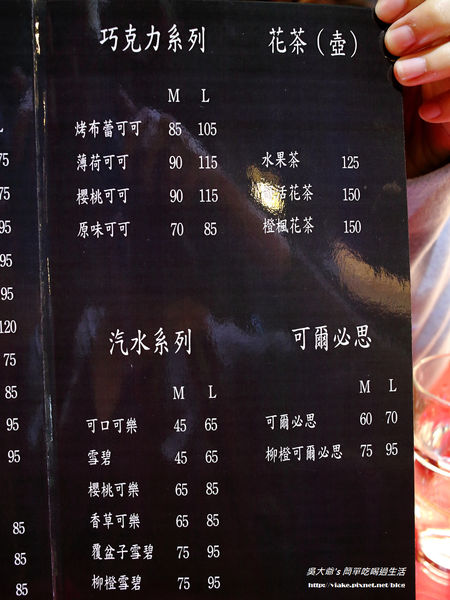 L
75
75
95
95
95
120
75
85
95
95
85
85
85
巧克力系列
M L
烤布蕾可可 85 105
薄荷可可 90 115
櫻桃可可 90 115
原味可可 70 85
花茶(壺)
水果茶 125
活花茶 150
橙楓花茶 150
汽水系列
M L
可口可樂 45 65
雪碧 45 65
櫻桃可樂 65 85
香草可樂 65 85
覆盆子雪碧 75 95
柳橙雪碧 75 95
可爾必思
M L
可爾必思 60 70
柳橙可爾必思 75 95
吳大爺's 簡單吃喝過生活
http://viake.pixnet.net/blog